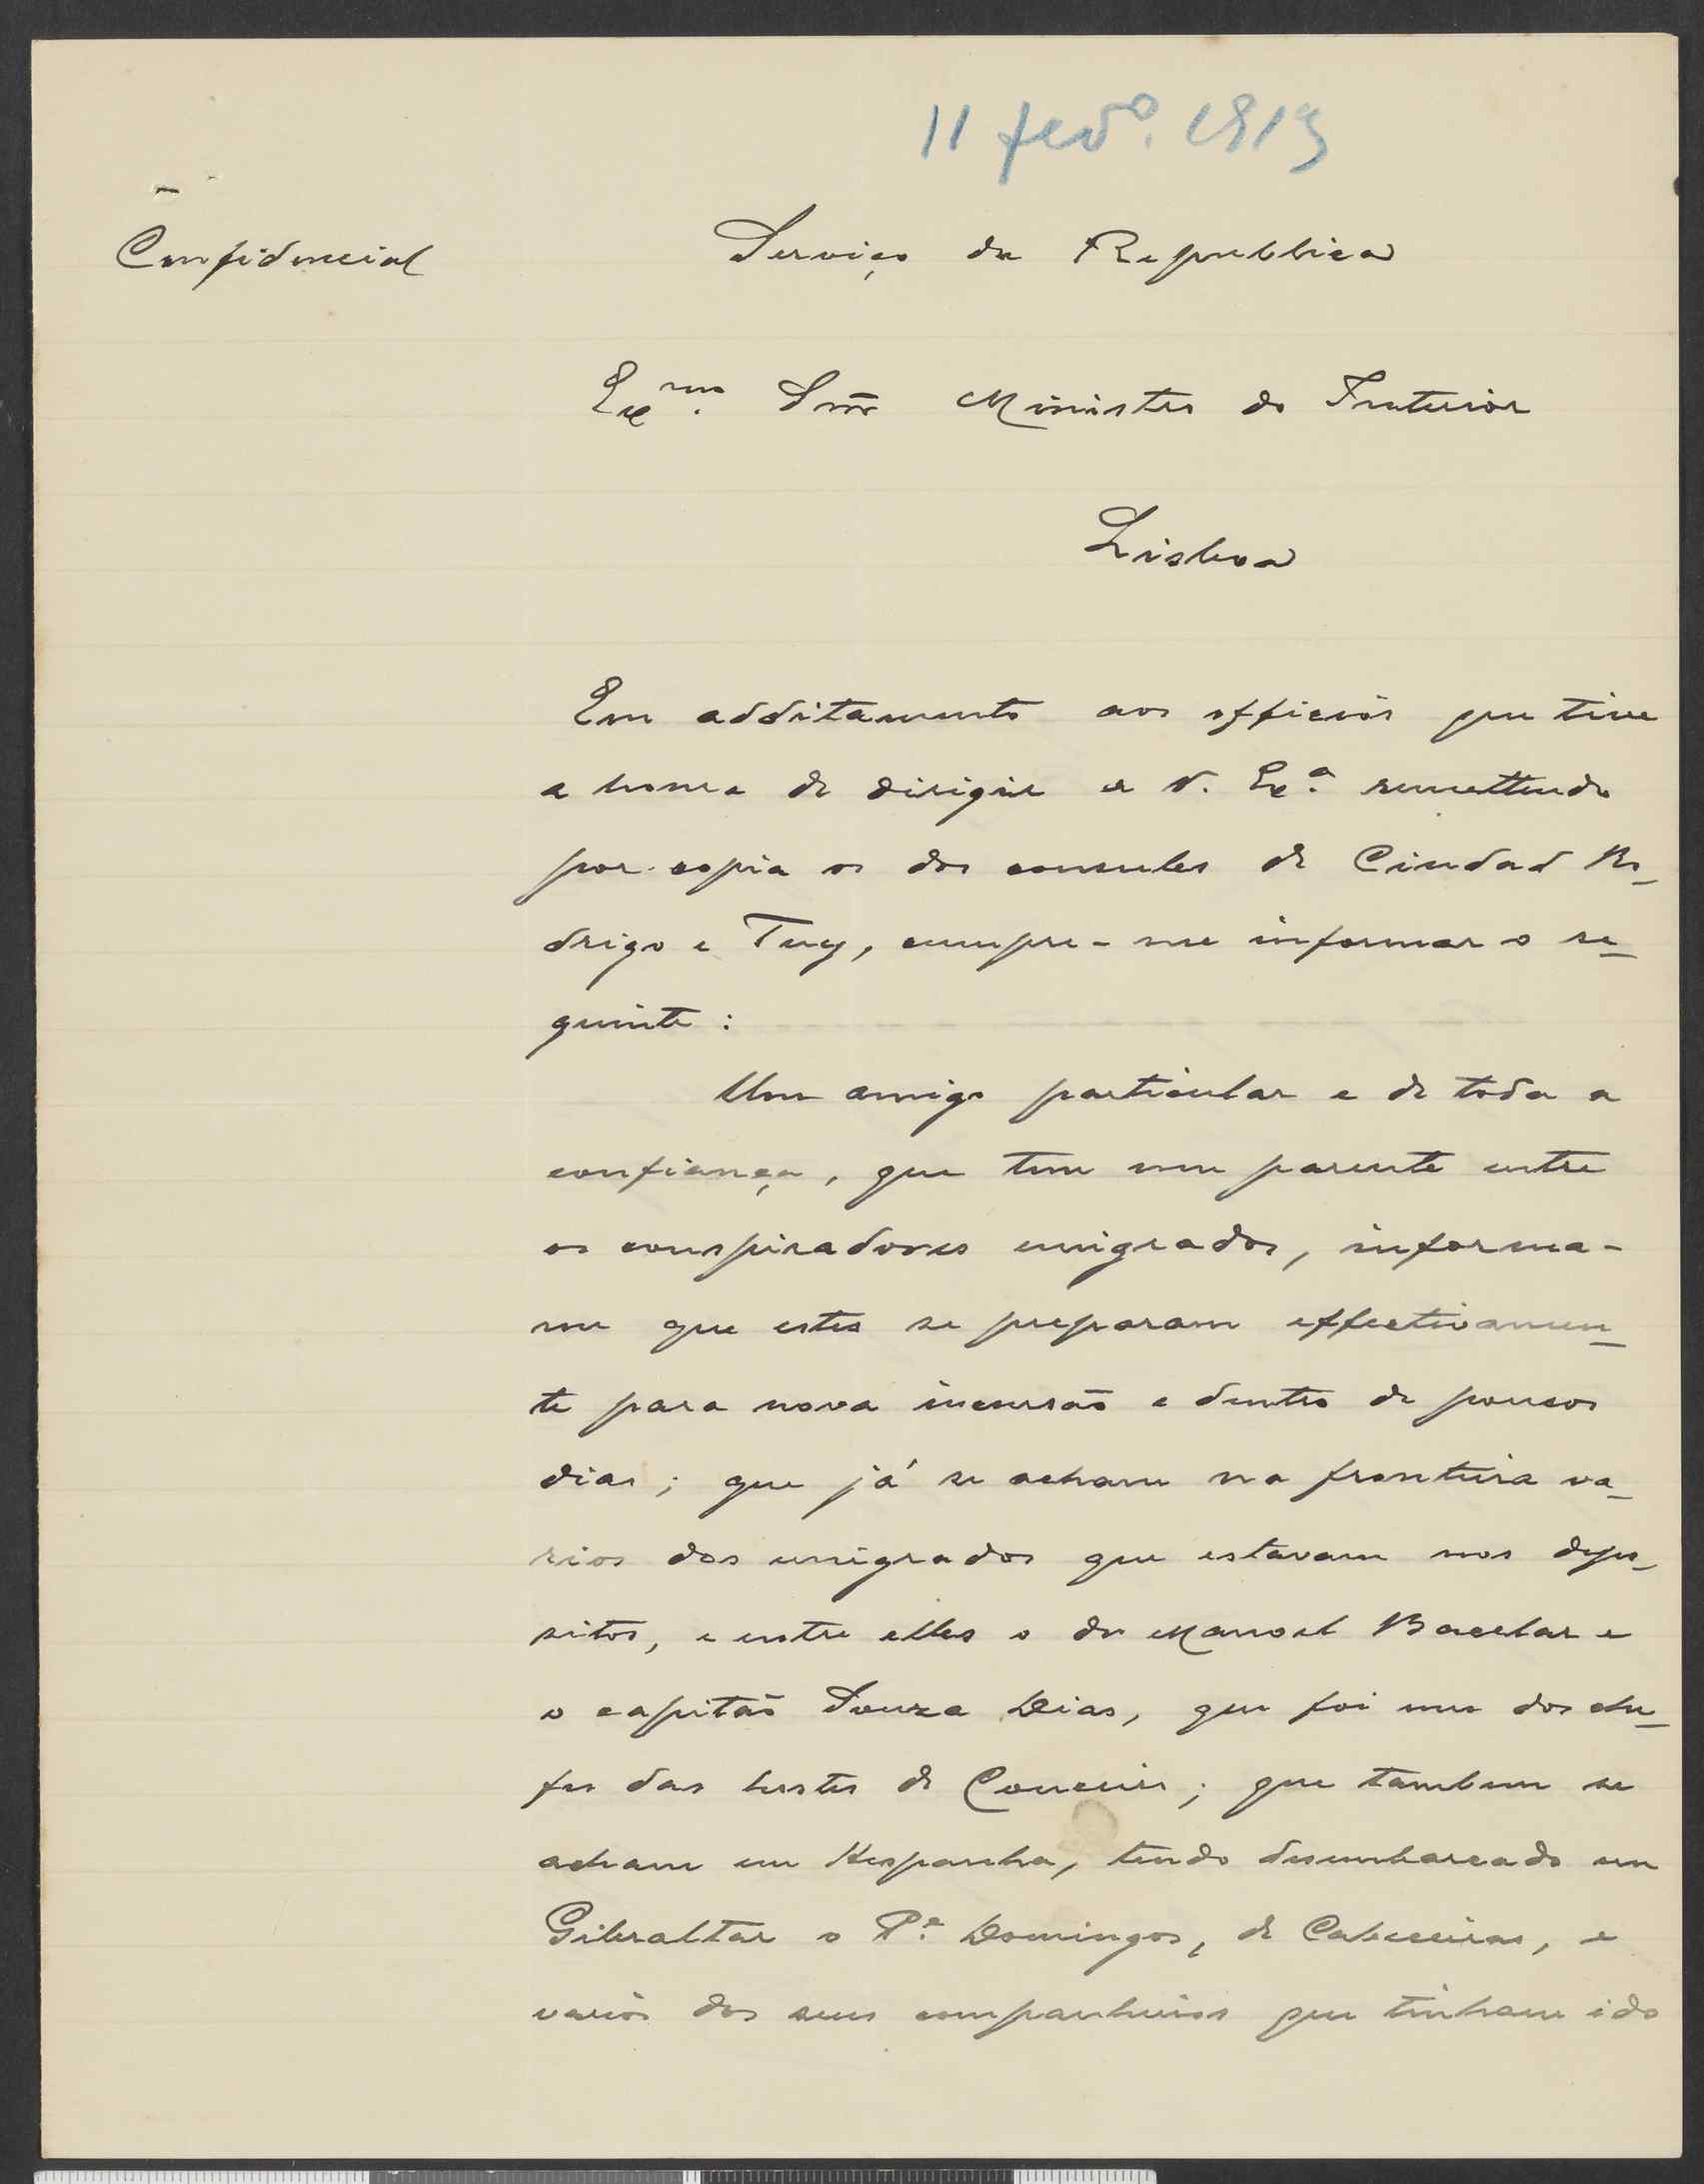 11 fevº. 1913
Confidencial
Serviço da Republica
Exmo. Snr Ministro do Interior
Lisboa
Em additamento aos officios que tive
a honra de dirigir a V. Exª. remettendo
por copia os dos consules de Ciudad Ro-
drigo e Tuy, cumpre-me informar o se-
guinte:
Um amigo particular e de toda a
confiança, que tem um parente entre
os conspiradores emigrados, informa-
me que estes se preparam effectivamen-
te para nova incursão e dentro de poucos
dias; que já se acham na fronteira va-
rios dos emigrados que estavam nos depo-
sitos, e entre elles o dr Manoel Bacelar e
o capitão Souza Dias, que foi um dos che-
fes das hostes de Couceiro; que tambem se
acham em Hespanha, tendo desembarcado em
Gibraltar o Pe. Domingos, de Cabeceiras, e
varios dos seus companheiros que tinham ido